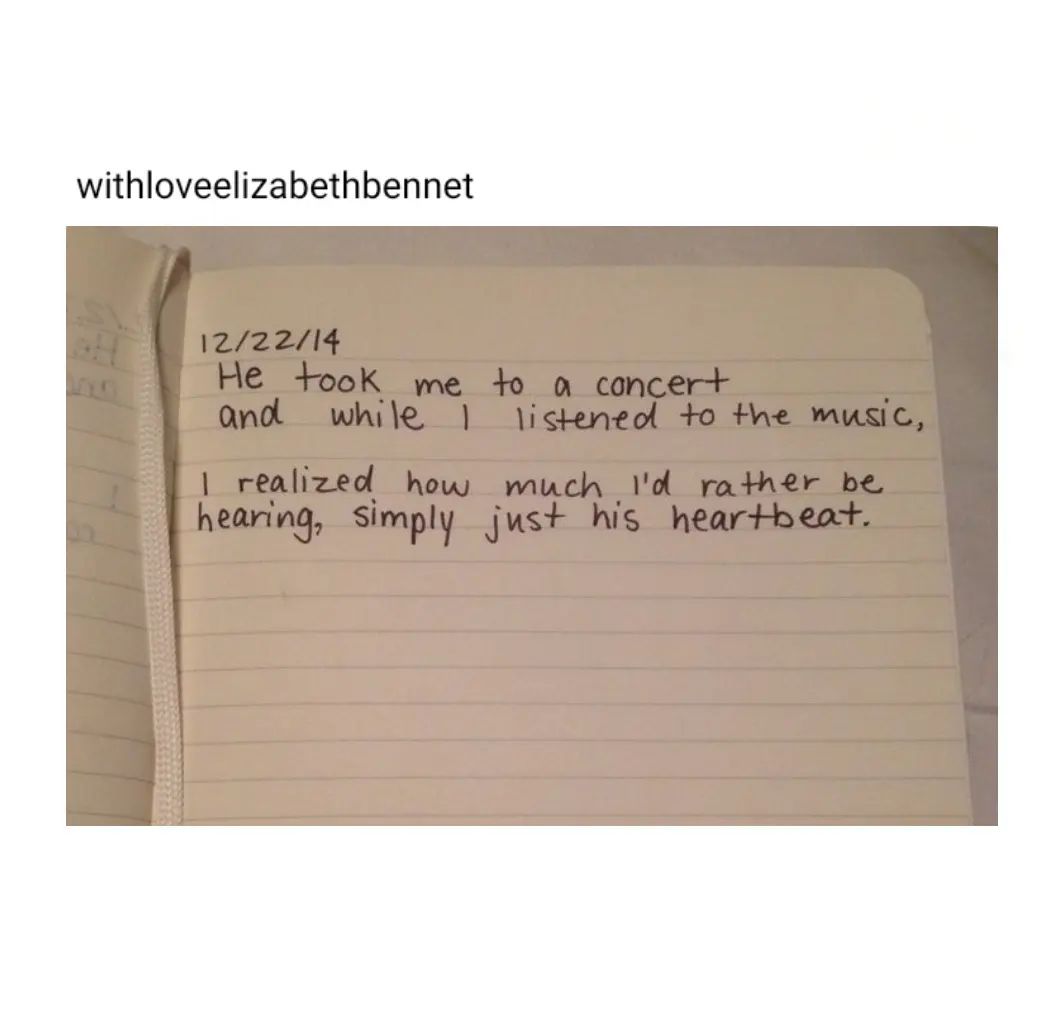 withloveelizabethbennet
12/22/14
He took me to a concert
and while I listened to the music,
I realized how much I'd rather be
hearing, simply just his heartbeat.